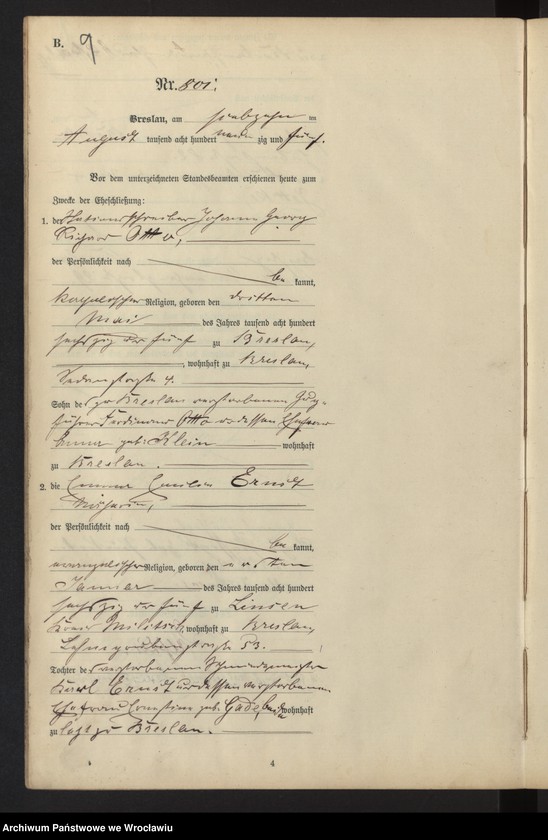 B. 9
Nr. 801.
Breslau, am siebzehn ten
August tausend acht hundert neun zig und fünf.
Vor dem unterzeichneten Standesbeamten erschienen heute zum
Zwecke der Eheschließung:
1. der Stationsschreiber Johann Georg
Richard Otto,
der Persönlichkeit nach
be kannt,
katholischer Religion, geboren den dritten
Mai des Jahres tausend acht hundert
sechszig und fünf zu Breslau,
, wohnhaft zu Breslau,
Sedanstraße 4.
Sohn des zu Breslau verstorbenen Zug-
führers Ferdinand Otto und dessen Ehefrau
Anna geb. Klein wohnhaft
zu Breslau.
2. die Emilie Ernst
der Persönlichkeit nach
be kannt,
evangelischer Religion, geboren den ersten
Januar des Jahres tausend acht hundert
sechszig und fünf zu Linsen
Kreis Militsch, wohnhaft zu Breslau,
53.
Tochter des verstorbenen Schmiedemeisters
Karl Ernst und dessen verstorbenen
Ehefrau Christine geb. Gade, beide wohnhaft
zu letzt zu Breslau.
4
Archiwum Państwowe we Wrocławiu